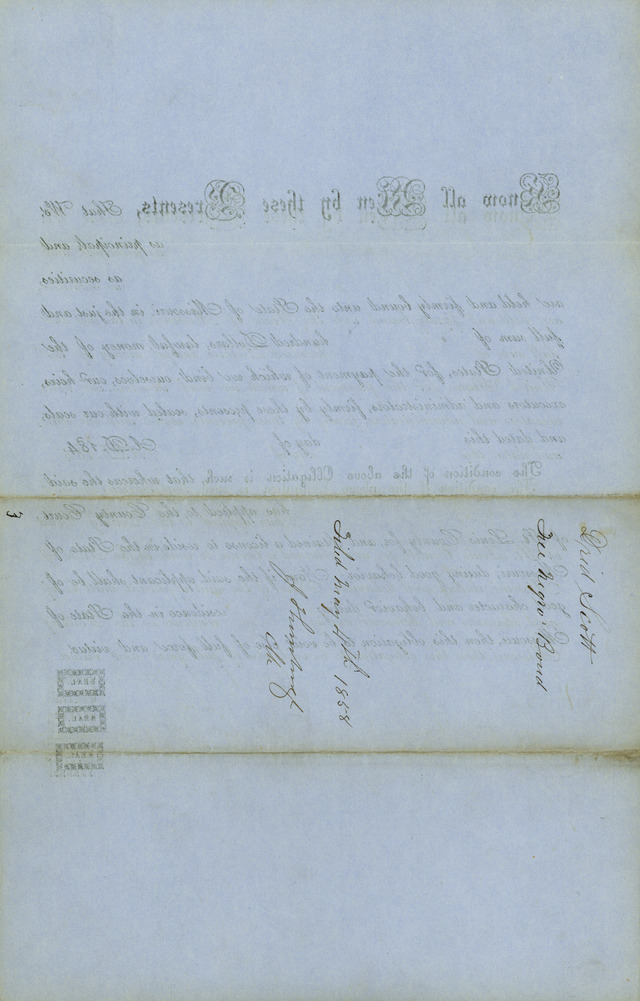 Know all Men by these Presents, That We,
as principal, and
as securities,
are held and firmly bound unto the State of Missouri, in the just and
full sum of hundred Dollars, lawful money of the
United States, for the payment of which we bind ourselves, our heirs,
executors and administrators, firmly by these presents, sealed with our seals,
and dated this day of A. D. 184
The condition of the above Obligation is such, that whereas the said
has applied to the County Court
of St. Louis County for, and obtained a license to reside in the State of
Missouri, during good behavior: Now, if the said applicant shall be of
good character and behavior during residence in the State of
Missouri, then this obligation to be void, else of full force and virtue.
SEAL
SEAL
SEAL
Dred Scott
Free Negro Bond
Filed May 4th 1858
Clk
3